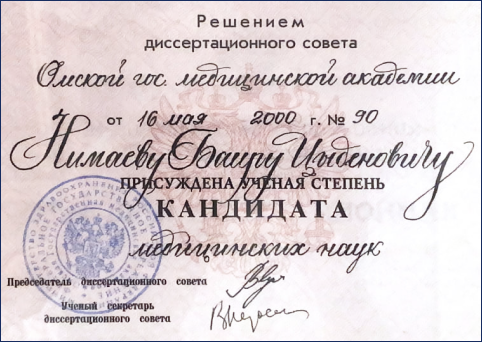 Решением
диссертационного совета
Омской гос. медицинской академии
от 16 мая 2000 г. № 90
Нимаеву Баиру Цыденовичу
ПРИСУЖДЕНА УЧЕНАЯ СТЕПЕНЬ
КАНДИДАТА
медицинских наук
Председатель диссертационного совета
Ученый секретарь
диссертационного совета